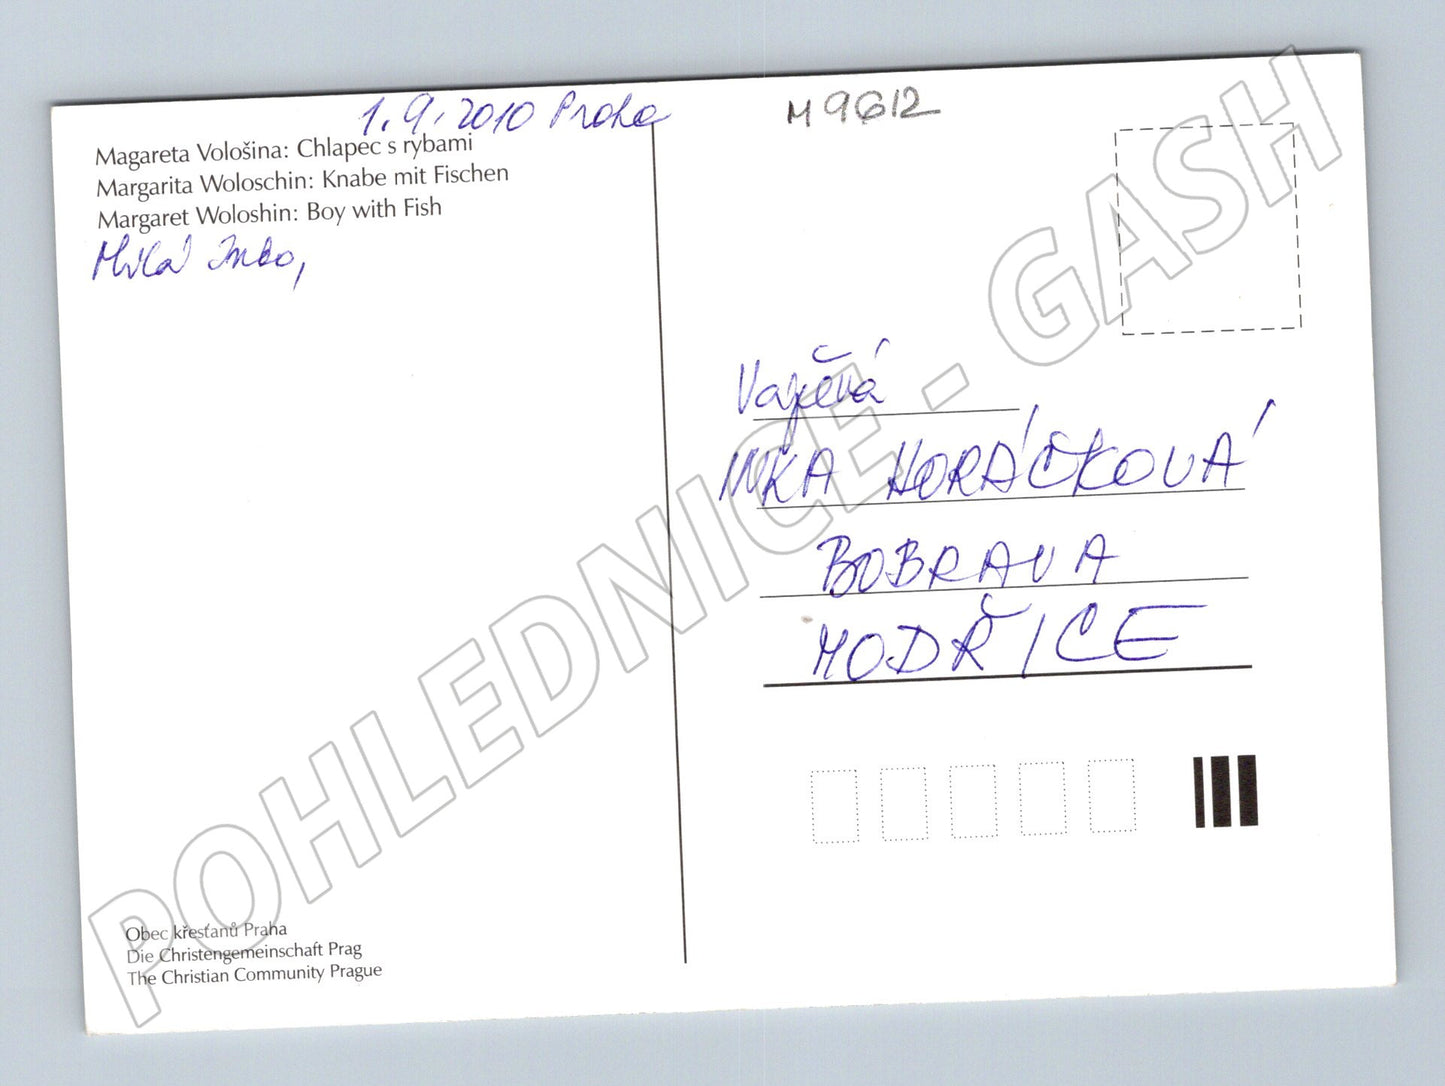 1.9.2010 Praha
M 9612
Magareta Vološina: Chlapec s rybami
Margarita Woloschin: Knabe mit Fischen
Margaret Woloshin: Boy with Fish
Milá Inko,
Vážená
INKA HORÁČKOVÁ
BOBRAVA
MODŘICE
Obec křesťanů Praha
Die Christengemeinschaft Prag
The Christian Community Prague
POHLEDNICE - GASH